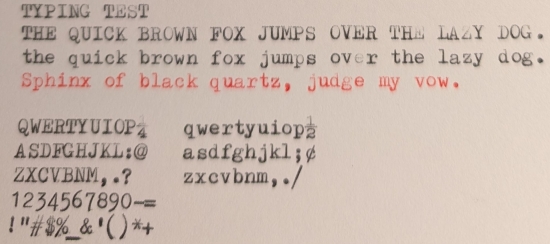 TYPING TEST
THE QUICK BROWN FOX JUMPS OVER THE LAZY DOG.
the quick brown fox jumps over the lazy dog.
Sphinx of black quartz, judge my vow.
QWERTYUIOP¼ qwertyuiop½
ASDFGHJKL:@ asdfghjkl;¢
ZXCVBNM,.? zxcvbnm,./
1234567890-=
!"#$%_&'()*+